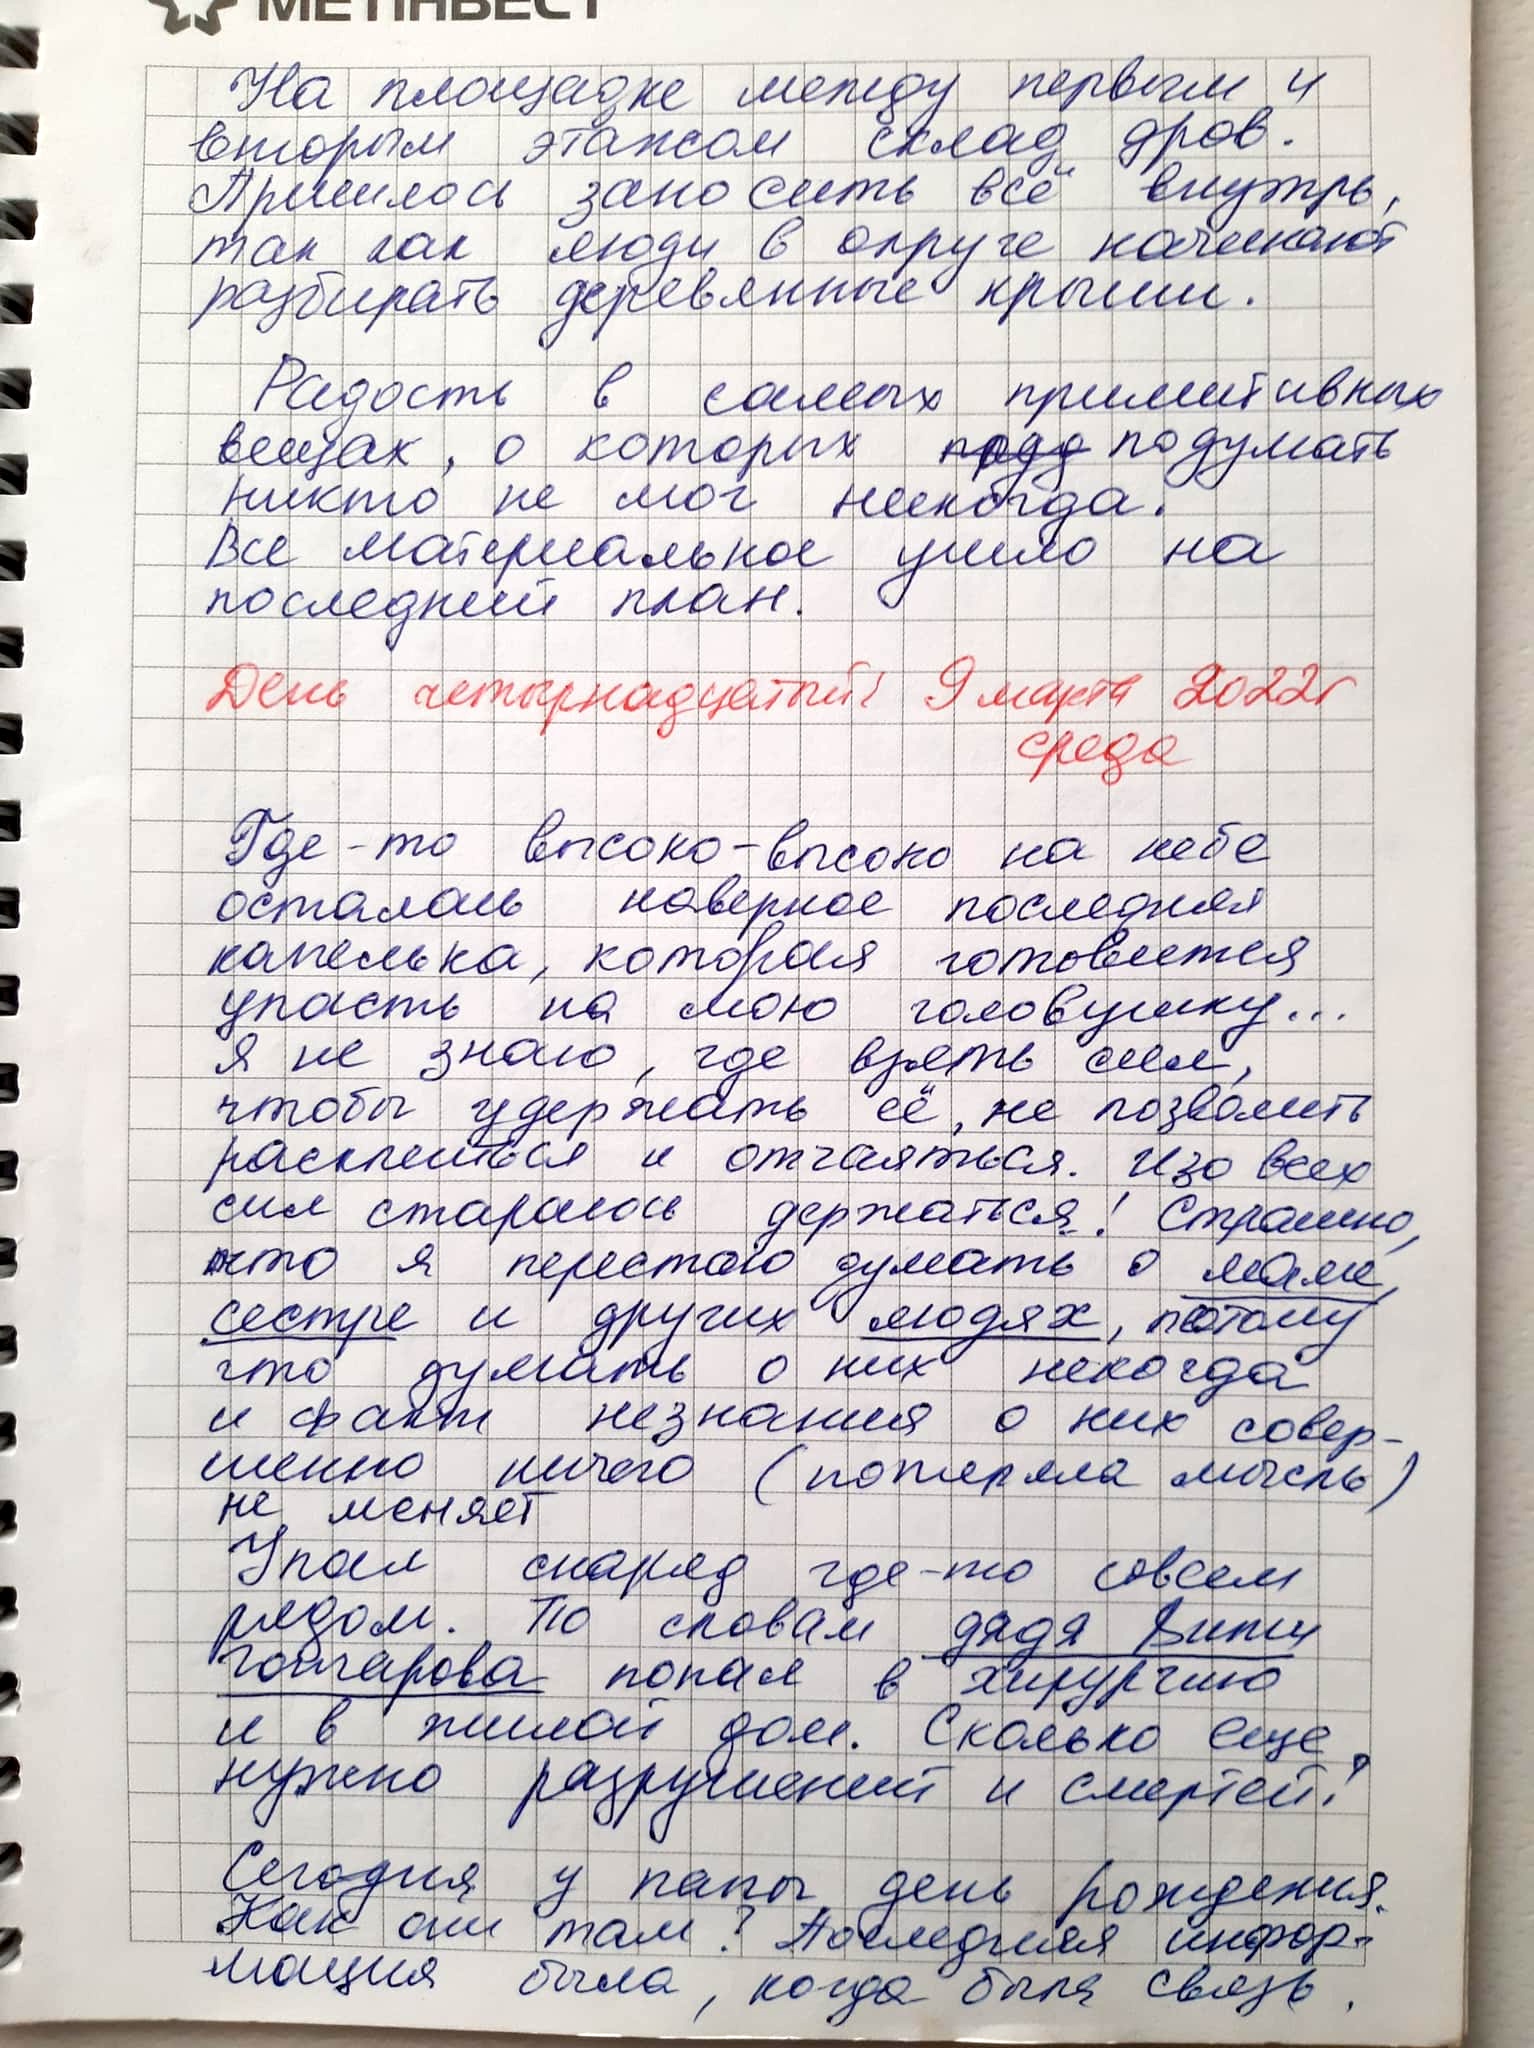 МЕТІНВЕСТ
На площадке между первым и
вторым этажом склад дров.
Пришлось заносить всё внутрь,
так как люди в округе начинают
разбирать деревянные крыши.
Радость в самых примитивных
вещах, о которых подумать
никто не мог никогда.
Все материальное ушло на
последний план.
День четырнадцатый! 9 марта 2022г
среда
Где-то высоко-высоко на небе
осталась наверное последняя
капелька, которая готовится
упасть на мою головушку...
Я не знаю, где взять сил,
чтобы удержать её, не позволить
расклеиться и отчаяться. Изо всех
сил стараюсь держаться! Страшно,
что я перестаю думать о маме,
сестре и других людях, потому
что думать о них некогда
и факт незнания о них совер-
шенно ничего (потеряла мысль)
не меняет
Упал снаряд где-то совсем
рядом. По словам дядя Вити
Гончарова попал в хирургию
и в жилой дом. Сколько еще
нужно разрушений и смертей?
Сегодня у папы день рождения.
Как они там? Последняя инфор-
мация была, когда была связь.